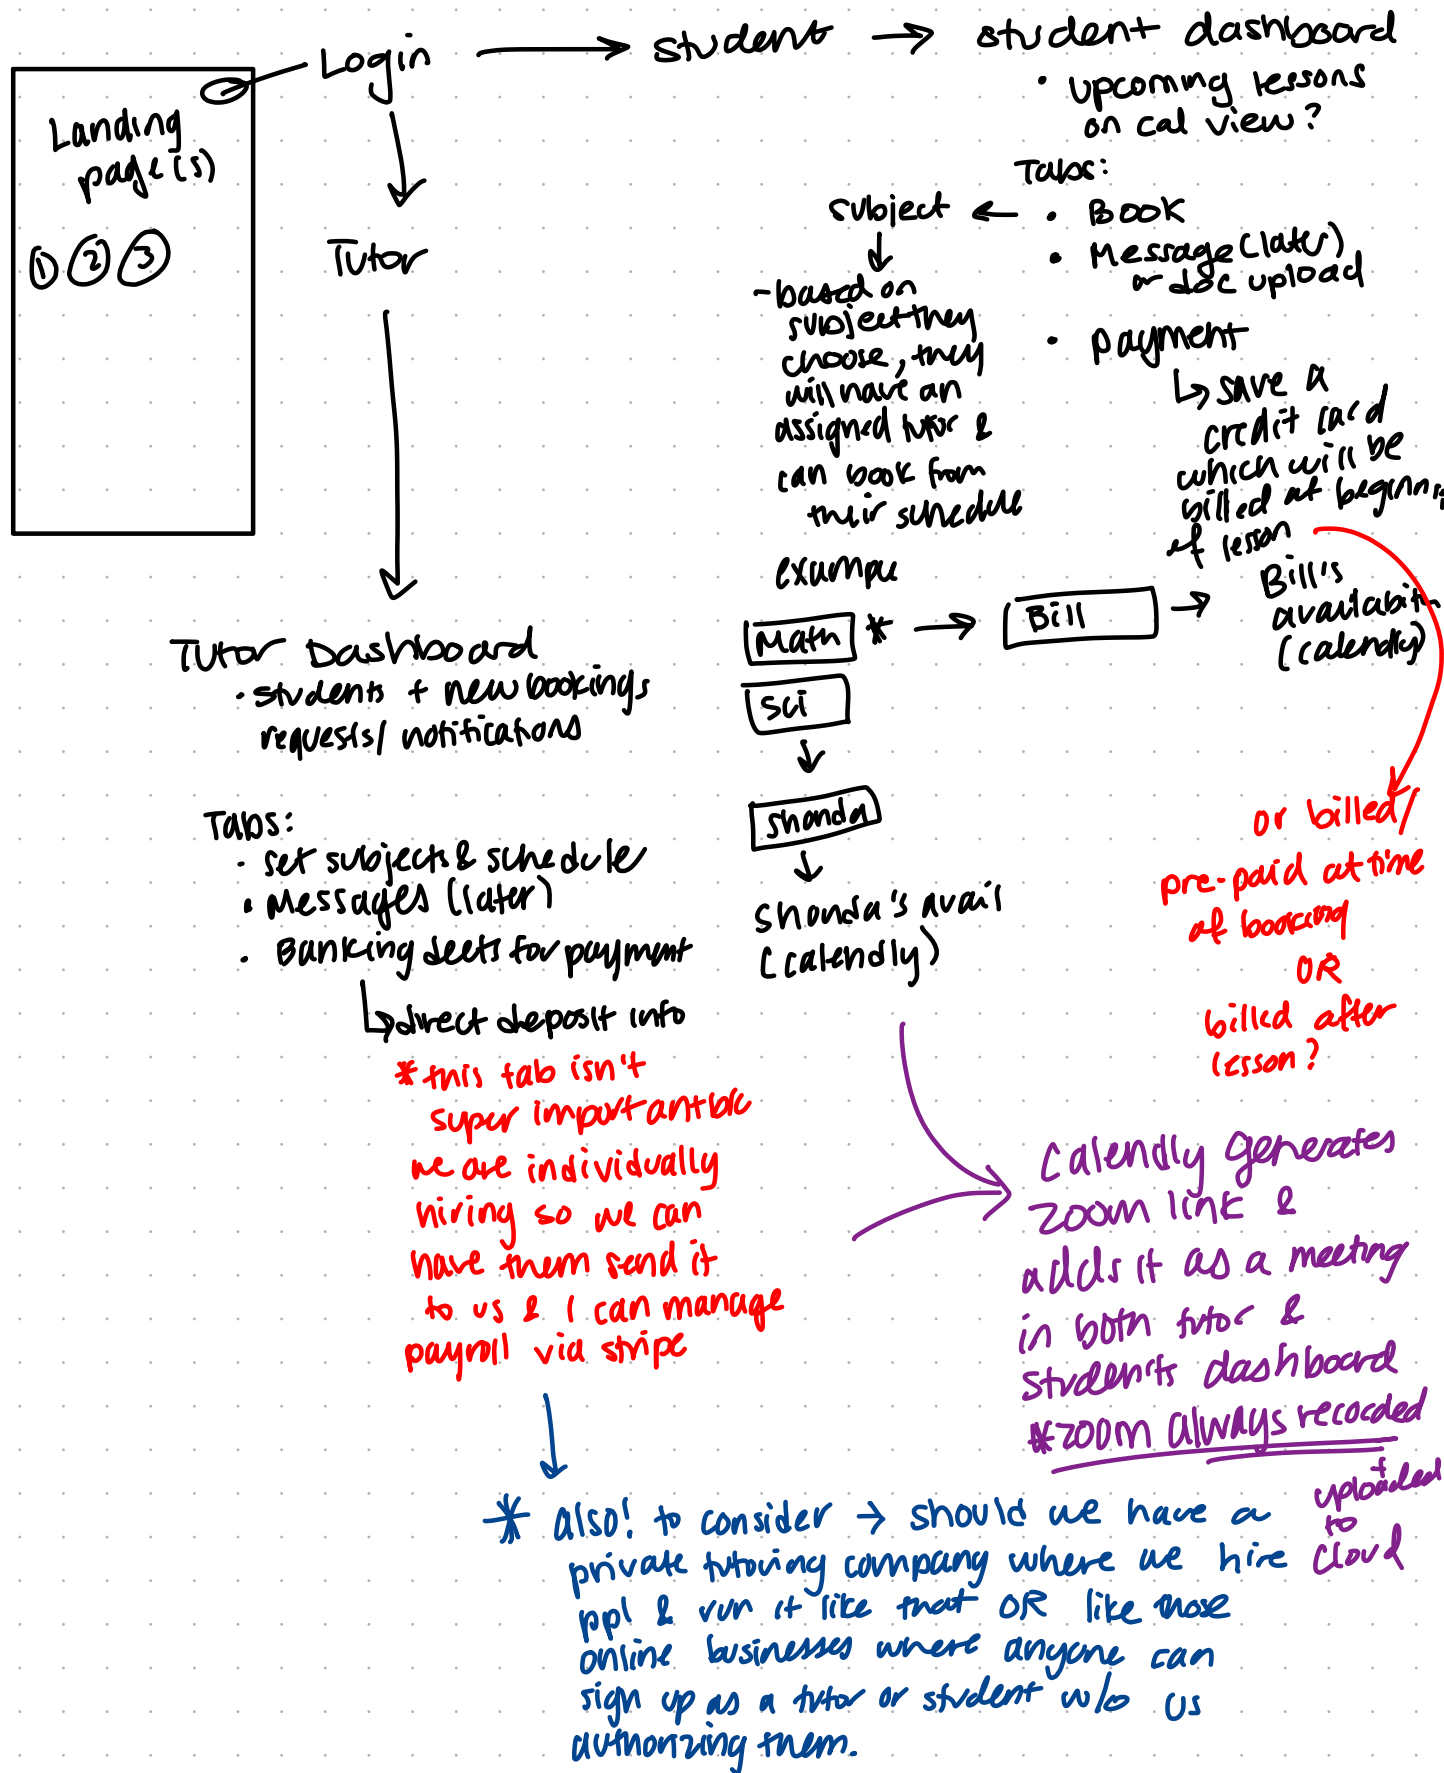 Login
student
student dashboard
• upcoming lessons
on cal view?
Landing
page(s)
① ② ③
Tutor
Tabs:
• Book
• Message (later)
or doc upload
• payment
↳ save a
credit card
which will be
billed at beginning
of lesson
subject
- based on
subject they
choose, they
will have an
assigned tutor &
can book from
their schedule
example
Math *
Bill
Bill's
availability
(calendly)
Sci
Shonda
Shonda's avail
(calendly)
or billed/
pre-paid at time
of booking
OR
billed after
lesson?
Tutor Dashboard
• students + new bookings
requests/ notifications
Tabs:
• set subjects & schedule
• Messages (later)
• Banking deets for payment
↳ direct deposit info
* this tab isn't
super important b/c
we are individually
hiring so we can
have them send it
to us & I can manage
payroll via stripe
Calendly generates
zoom link &
adds it as a meeting
in both tutor &
students dashboard
* zoom always recorded
+
uploaded
to
cloud
* also! to consider → should we have a
private tutoring company where we hire
ppl & run it like that OR like those
online businesses where anyone can
sign up as a tutor or student w/o us
authorizing them.